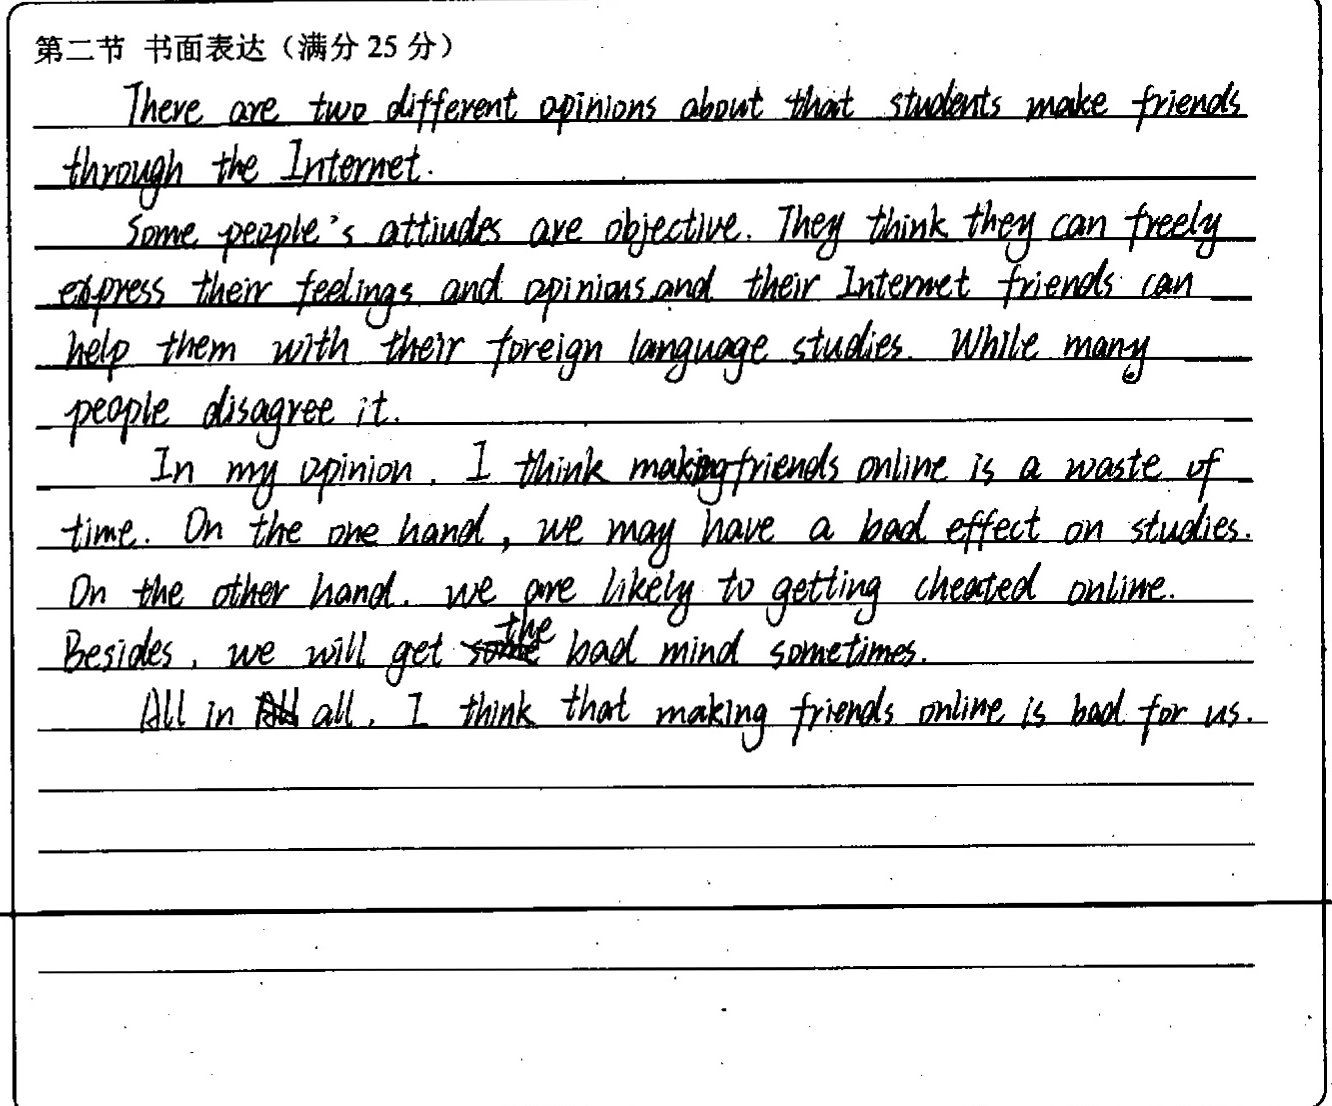 第二节 书面表达（满分 25 分）
There are two different opinions about that students make friends
through the Internet.
Some people's attiudes are objective. They think they can freely
express their feelings and opinions and their Internet friends can
help them with their foreign language studies. While many
people disagree it.
In my opinion, I think making friends online is a waste of
time. On the one hand, we may have a bad effect on studies.
On the other hand, we are likely to getting cheated online.
Besides, we will get the bad mind sometimes.
All in all, I think that making friends online is bad for us.